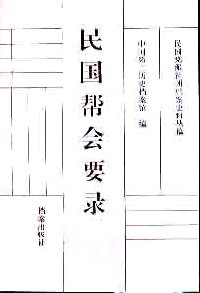 民国党派社团档案史料丛稿
中国第二历史档案馆 编
民国帮会要录
档案出版社